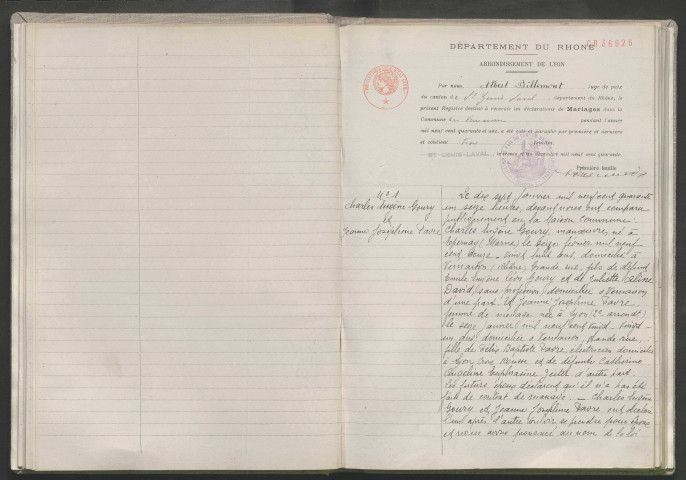 CR36926
DÉPARTEMENT DU RHÔNE
ARRONDISSEMENT DE LYON
Par nous, Albert Billemont juge de paix
du canton de St Genis Laval, département du Rhône, le
présent Registre destiné à recevoir les déclarations de Mariages dans la
Commune de pendant l'année
mil neuf cent quarante et une, a été coté et paraphé par première et dernière
et contient Trois feuilles
ST-GENIS-LAVAL, le treize décembre mil neuf cent quarante.
Première feuille
N° 1
Charles Eugène Goury
et
Jeanne Joséphine Favre
Le dix sept Janvier mil neuf cent quarante
en seize heures, devant nous ont comparu
publiquement en la Maison Commune:
Charles Eugène Goury, manœuvre, né à
Epernay (Marne) le seize février mil neuf
cent douze - vingt huit ans, domicilié à
Vernaison (Rhône) Grande rue, fils de défunt
Emile Eugène Léon Goury et de Juliette
David, sans profession, domiciliée à Vernaison
d'une part. Et Jeanne Joséphine Favre,
femme de ménage née à Lyon (2e arrondt)
le seize Janvier mil neuf cent vingt - vingt-
un ans, domiciliée à Vernaison, Grande rue,
fille de Félix Baptiste Favre, électricien domicilié
à Lyon Croix Rousse et de défunte Catherine
Angeline Euphrasine d'autre part.
Les futurs époux déclarent qu'il n'a pas été
fait de contrat de mariage. - Charles Eugène
Goury et Jeanne Joséphine Favre, ont déclaré
l'un après l'autre vouloir se prendre pour époux
et nous avons prononcé au nom de la loi